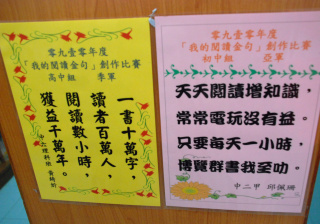 零九壹零年度
「我的閱讀金句」創作比賽
高中組 季軍
一書十萬字，
讀者百萬人，
閱讀數小時，
獲益千萬年。
零九壹零年度
「我的閱讀金句」創作比賽
初中組 亞軍
天天閱讀增知識，
常常電玩沒有益。
只要每天一小時，
博覽群書我至叻。
中二甲 邱佩珊